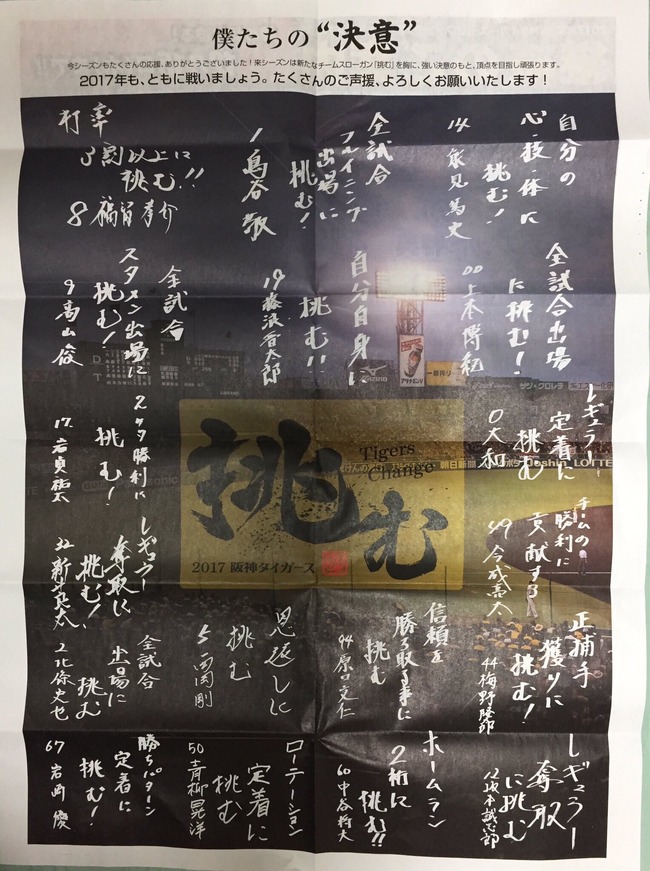 僕たちの“決意”
今シーズンもたくさんの応援、ありがとうございました!来シーズンは新たなチームスローガン「挑む」を胸に、強い決意のもと、頂点を目指し頑張ります。
2017年も、ともに戦いましょう。たくさんのご声援、よろしくお願いいたします!
自分の
心・技・体に
挑む!
14 能見篤史
全試合
フルイニング
出場に
挑む!
1 鳥谷敬
打率
3割以上に
挑む!!
8 福留孝介
全試合出場
に挑む!
00 上本博紀
自分自身に
挑む!!
19 藤浪晋太郎
全試合
スタメン出場に
挑む!
9 高山俊
レギュラー
定着に
挑む
0 大和
2ケタ勝利に
挑む!
17 岩貞祐太
チームの
勝利に
貢献する
49 今成亮太
レギュラー
奪取に
挑む!
32 新井良太
正捕手
獲りに
挑む!
44 梅野隆太郎
信頼を
勝ち取る事に
挑む
94 原口文仁
恩返しに
挑む
5 西岡剛
全試合
出場に
挑む
2 北條史也
レギュラー
奪取
に挑む
12 坂本誠志郎
ホームラン
2桁に
挑む!!
60 中谷将大
ローテーション
定着に
挑む
50 青柳晃洋
勝ちパターン
定着に
挑む!
67 岩崎優
挑む
Tigers
Change
2017 阪神タイガース
MIZUNO
一番搾り
アリナミン
サン・クロレラ
朝日新聞
Joshin
LOTTE